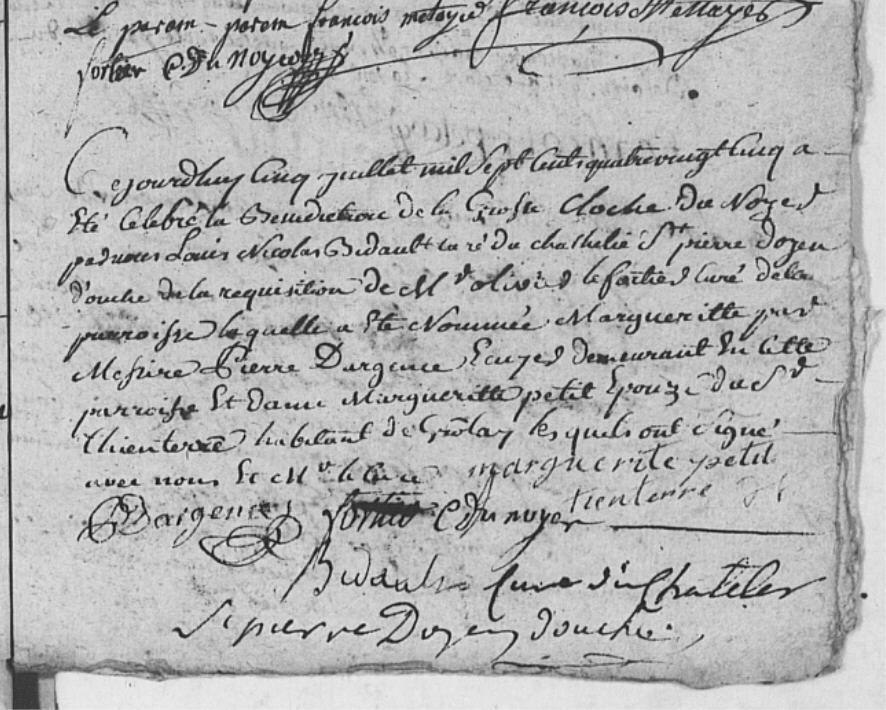 Le parain - parain francois metayer François Mettayer
fortier C. du Noyer
Cejourdhuy Cinq juillet mil Sept Cents quatrevingt Cinq a
Eté Celebré la Benediction de la Grosse Cloche du Noyer
par nous Louis Nicolas Bidault curé du chathelié St pierre doyen
d'ouche de la requisition de Mr olivier le fortier Curé de la
parroisse laquelle a été Nommée Margueritte par
Messire Pierre Dargence Ecuyer demeurant En Cette
parroisse Et dame Margueritte petit Epouze du Sr
thienterre habitant de les quels ont Signé
avec nous Et Mr le Curé marguerite petit
Dargence fortier C du noyer tienterre
Bidault Curé du Chatelier
St pierre Doyen douche